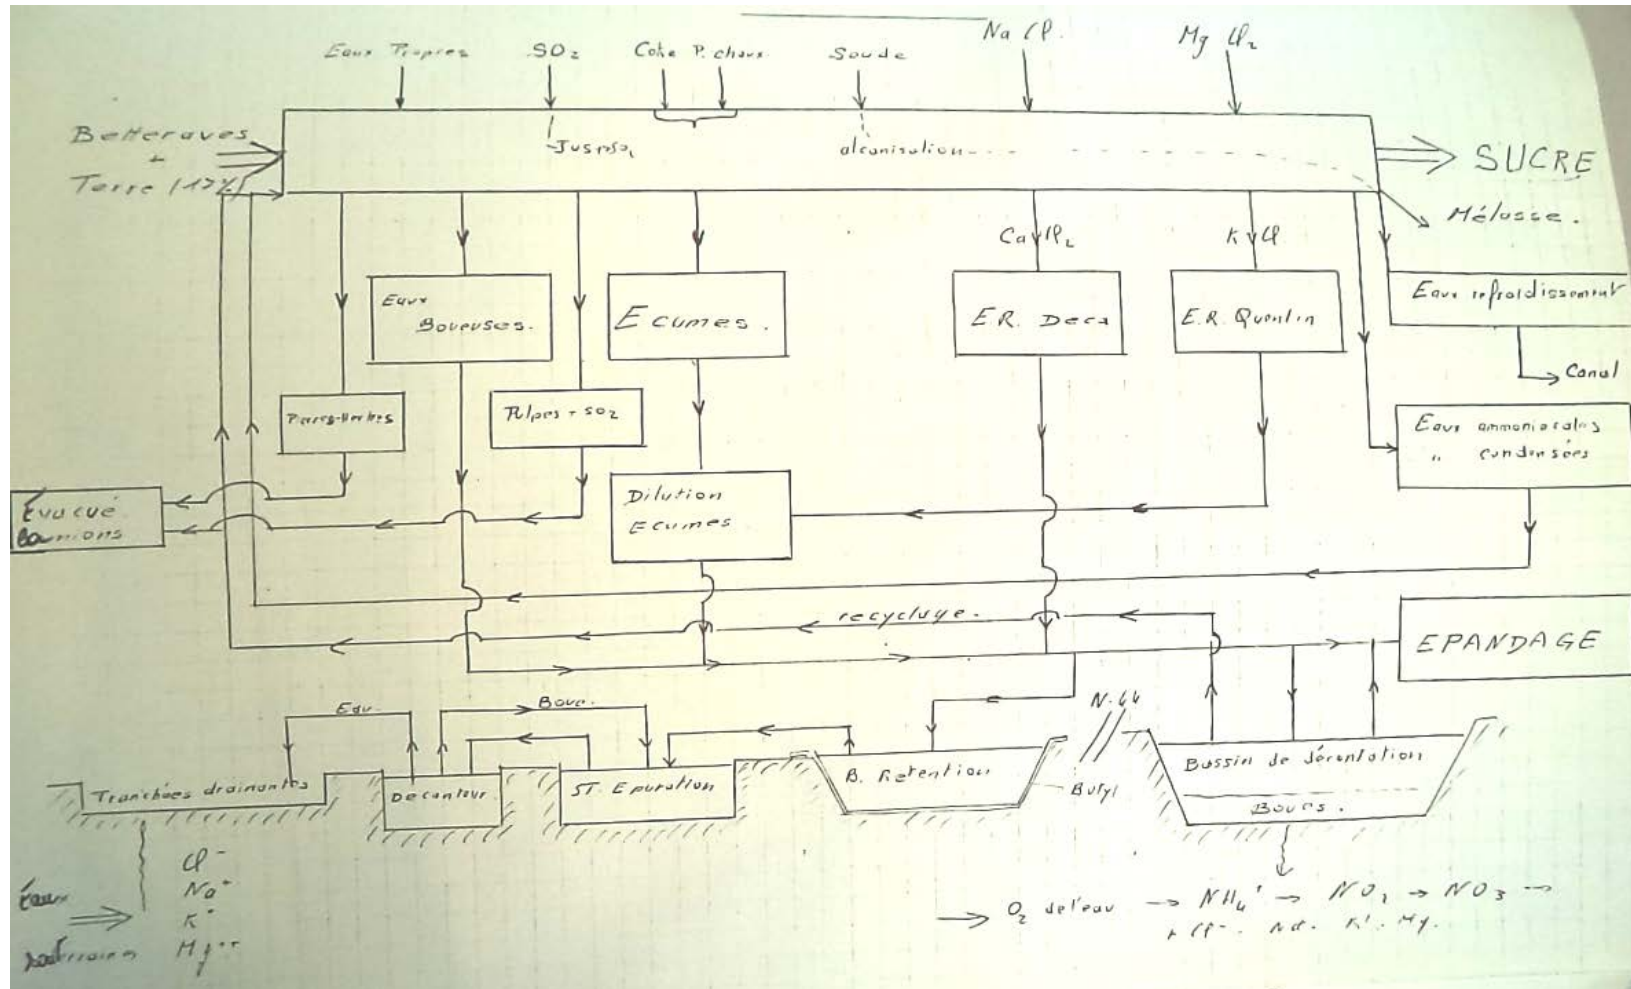 Na Cl.
Mg Cl₂
Eaux Propres
SO₂
Coke P. chaux.
Soude
Betteraves
+
Terre (17%)
alcanisation
SUCRE
Mélasse.
Ca Cl₂
K Cl
Eaux
Boueuses.
Ecumes.
E.R. Deca
E.R. Quentin
Eaux refroidissement
Canal
Pierres-Herbes
Pulpes + SO₂
Eaux ammoniacales
" condensées
Évacué
Camions
Dilution
Ecumes
recyclage.
EPANDAGE
Eau.
Boue.
N.44
Tranchées drainantes
Decanteur.
ST. Epuration
B. Retention
Butyl
Bassin de décantation
Boues.
Cl⁻
Na⁺
K⁺
Mg⁺⁺
Eaux
souterraines
O₂ de l'eau → NH₄⁺ → NO₂ → NO₃ →
+ Cl⁻. Na⁺. K⁺. Mg.